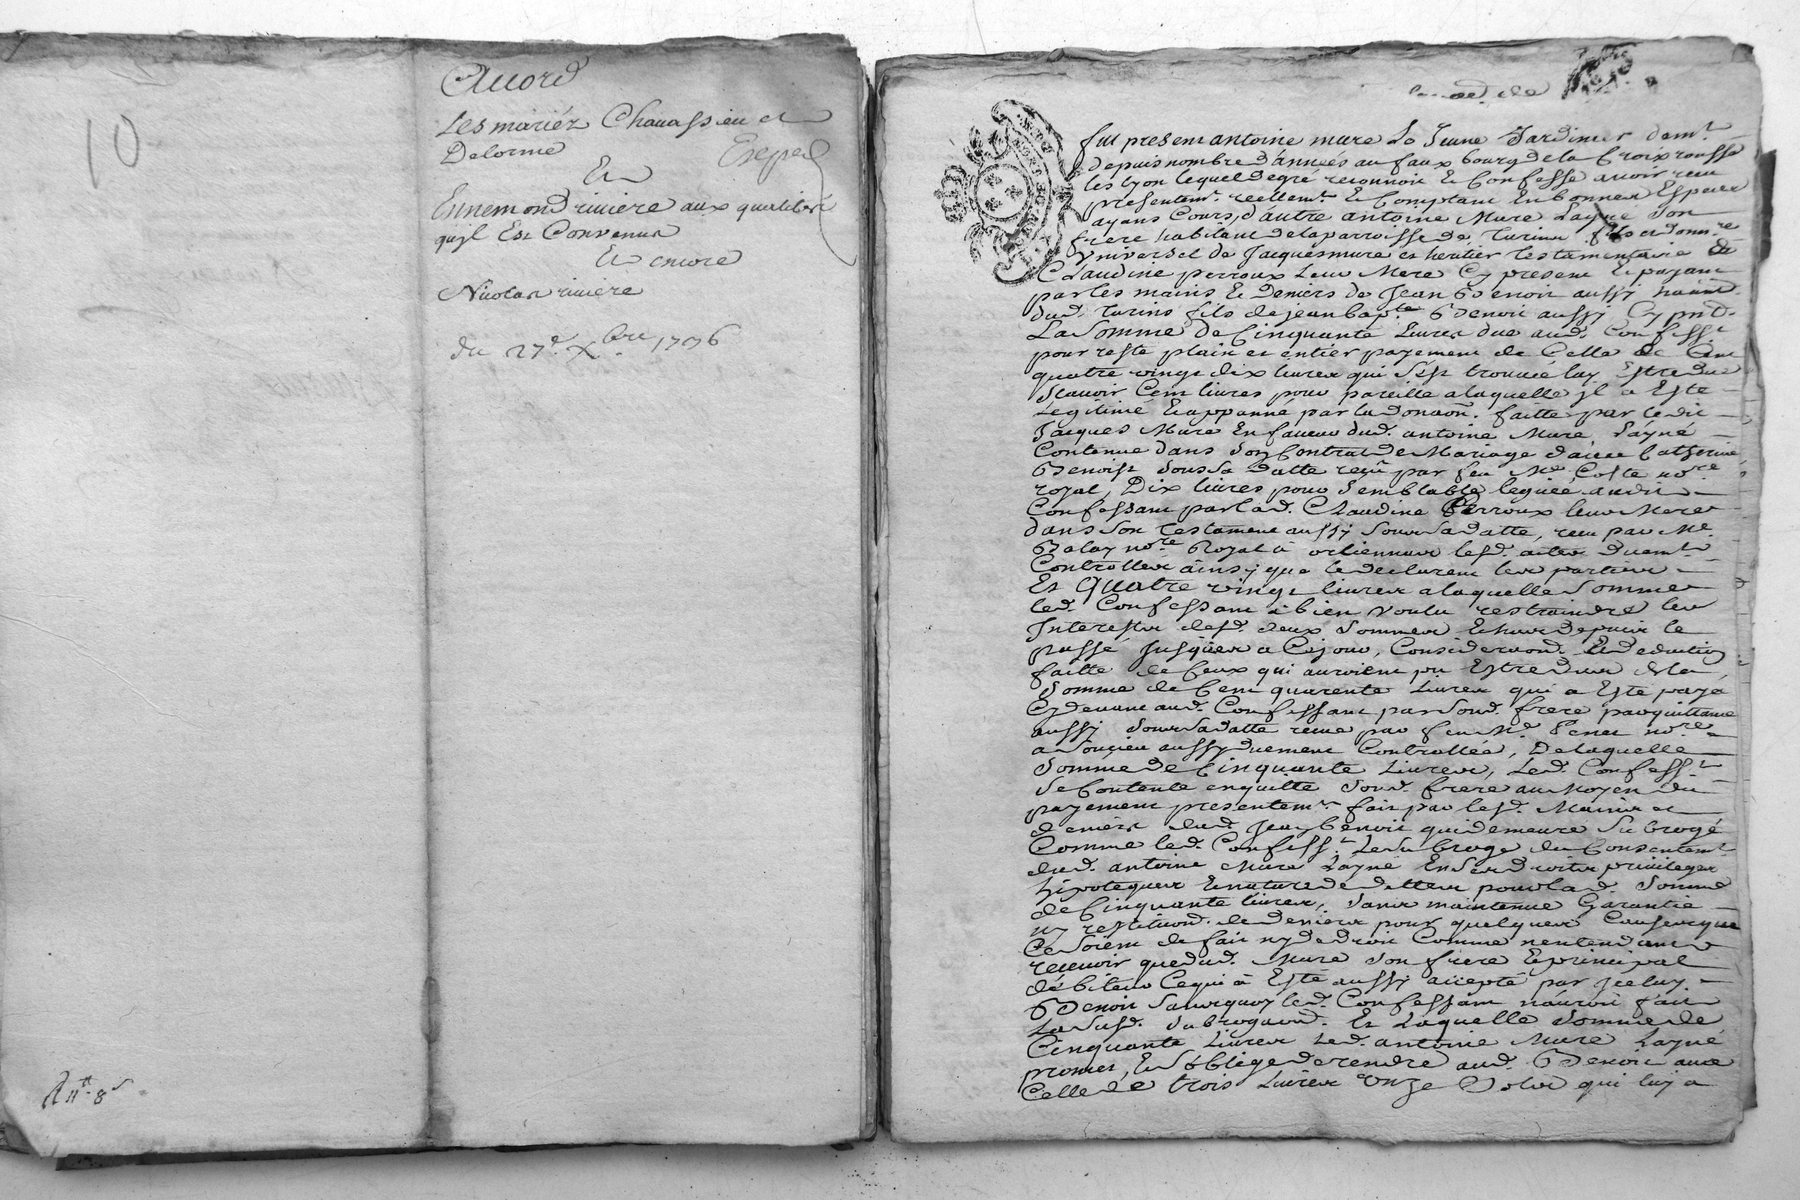 10
Accord
Les mariéz Chavassieu et
Delorme
Et
Ennemond riviere aux qualités
qu'jl Est Convenus
Et encore
Nicolas riviere
du 27e Xbre 1706
Exepedié
R 11tt 8s
fut present antoine mure Le Jeune Jardinier demt
depuis nombre d'années au faux bourg de la Croix rousse
les lyon lequel de gré reconnoit Et Confesse avoir receu
presentemt reellemt Et Comptant En bonnes Especes
ayans Cours, d'autre antoine Mure Layné Son
frere habitant de la parroisse de Turins fils et donnre
Vniversel de Jacques mure et heritier testamentaire de
Claudine perroux Leur Mere Cy present Et payant
par les mains Et Deniers de Jean Benoit aussy habitant
dud. Turins fils de jean bapte Benoit aussy Cy pnt.
La Somme de Cinquante Livres due aud. Confesst
pour reste plain et entier payement de Celle de Cent
quatre vingt dix livres qui s'est trouvée luy Estre due
Scavoir Cent livres pour pareille a laquelle jl a Esté
Legitimé Et appanné par la donaon. faitte par ledit
Jacques Mure En faveur dud. antoine Mure Layné
Contenue dans Son Contrat de Mariage d'avec Catherine
Benoist Sous Sa datte reçu par feu Me Coste nore
royal, Dix livres pour Semblable leguée audit
Confessant par lad. Claudine Perroux leur Mere
dans Son testament aussy Sous Sa datte, receu par Me
Balay nore Royal à orliennas lesd. actes duemt
Controllés ainsy que le declarent les parties
Et Quatre vingt livres a laquelle Somme
led. Confessant a bien voulu restraindre les
Interests desd. deux Sommes Echus depuis le
passé Jusques a Cejour, Consideraon. Et deduction
faitte de Ceux qui auroient pu Estre dus de la
Somme de Cent quarente Livres qui a Esté payé
Cy devant aud. Confessant par Sond. frere par quittance
aussy Sous Sa datte receue par feu Me nore
a Soucieu aussy duement Controllée, De laquelle
Somme de Cinquante Livres, Led. Confesst
Se Contente en quitte Sond. frere au Moyen du
payement presentemt fait par lesd. Mains et
deniers dud. Jean Benoit qui demeure Subrogé
Comme led. Confesst Le Subroge du Consentemt
dud. antoine Mure Layné En Ses droits privileges
hipoteques Et nature de dettes pour lad. Somme
de Cinquante livres, Sans maintenue Garantie
ny restituon. de deniers pour quelques Causes que
Ce Soient de fait ny de droit Comme n'entendant
recevoir que dud. Mure Son frere Et principal
débiteur Ce qui à Esté aussy accepté par Jceluy
Benoit Sans quoy led. Confessant n'auroit fait
La Susd. Subrogaon. Et Laquelle Somme de
Cinquante Livres Led. antoine Mure Layné
promet, Et S'oblige de rendre aud. Benoit avec
Celle de trois Livres Onze Sols qui luy a